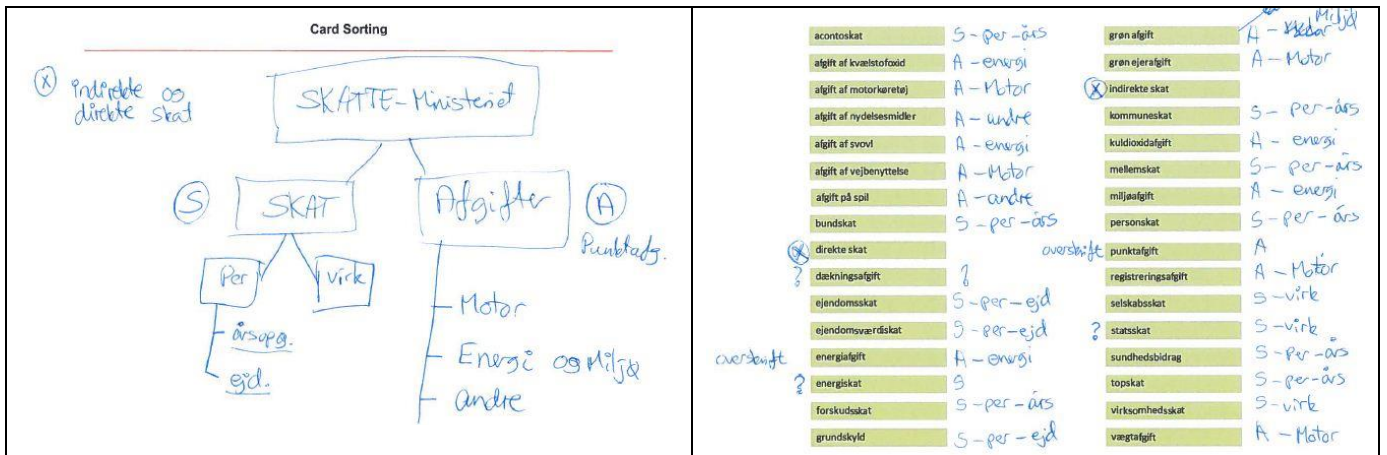 Card Sorting
Ⓧ indirekte og
direkte skat
SKATTE-Ministeriet
Ⓢ SKAT
Afgifter Ⓐ
Punktafg.
Per
virk
årsopg.
ejd.
Motor
Energi og Miljø
andre
acontoskat S-per-års
afgift af kvælstofoxid A-energi
afgift af motorkøretøj A-Motor
afgift af nydelsesmidler A-andre
afgift af svovl A-energi
afgift af vejbenyttelse A-Motor
afgift på spil A-andre
bundskat S-per-års
Ⓧ direkte skat
? dækningsafgift ?
ejendomsskat S-per-ejd
ejendomsværdiskat S-per-ejd
overskrift energiafgift A-energi
? energiskat S
forskudsskat S-per-års
grundskyld S-per-ejd
grøn afgift A- Miljø
grøn ejerafgift A-Motor
Ⓧ indirekte skat
kommuneskat S-per-års
kuldioxidafgift A-energi
mellemskat S-per-års
miljøafgift A-energi
personskat S-per-års
overskrift punktafgift A
registreringsafgift A-Motor
selskabsskat S-virk
? statsskat S-virk
sundhedsbidrag S-per-års
topskat S-per-års
virksomhedsskat S-virk
vægtafgift A-Motor